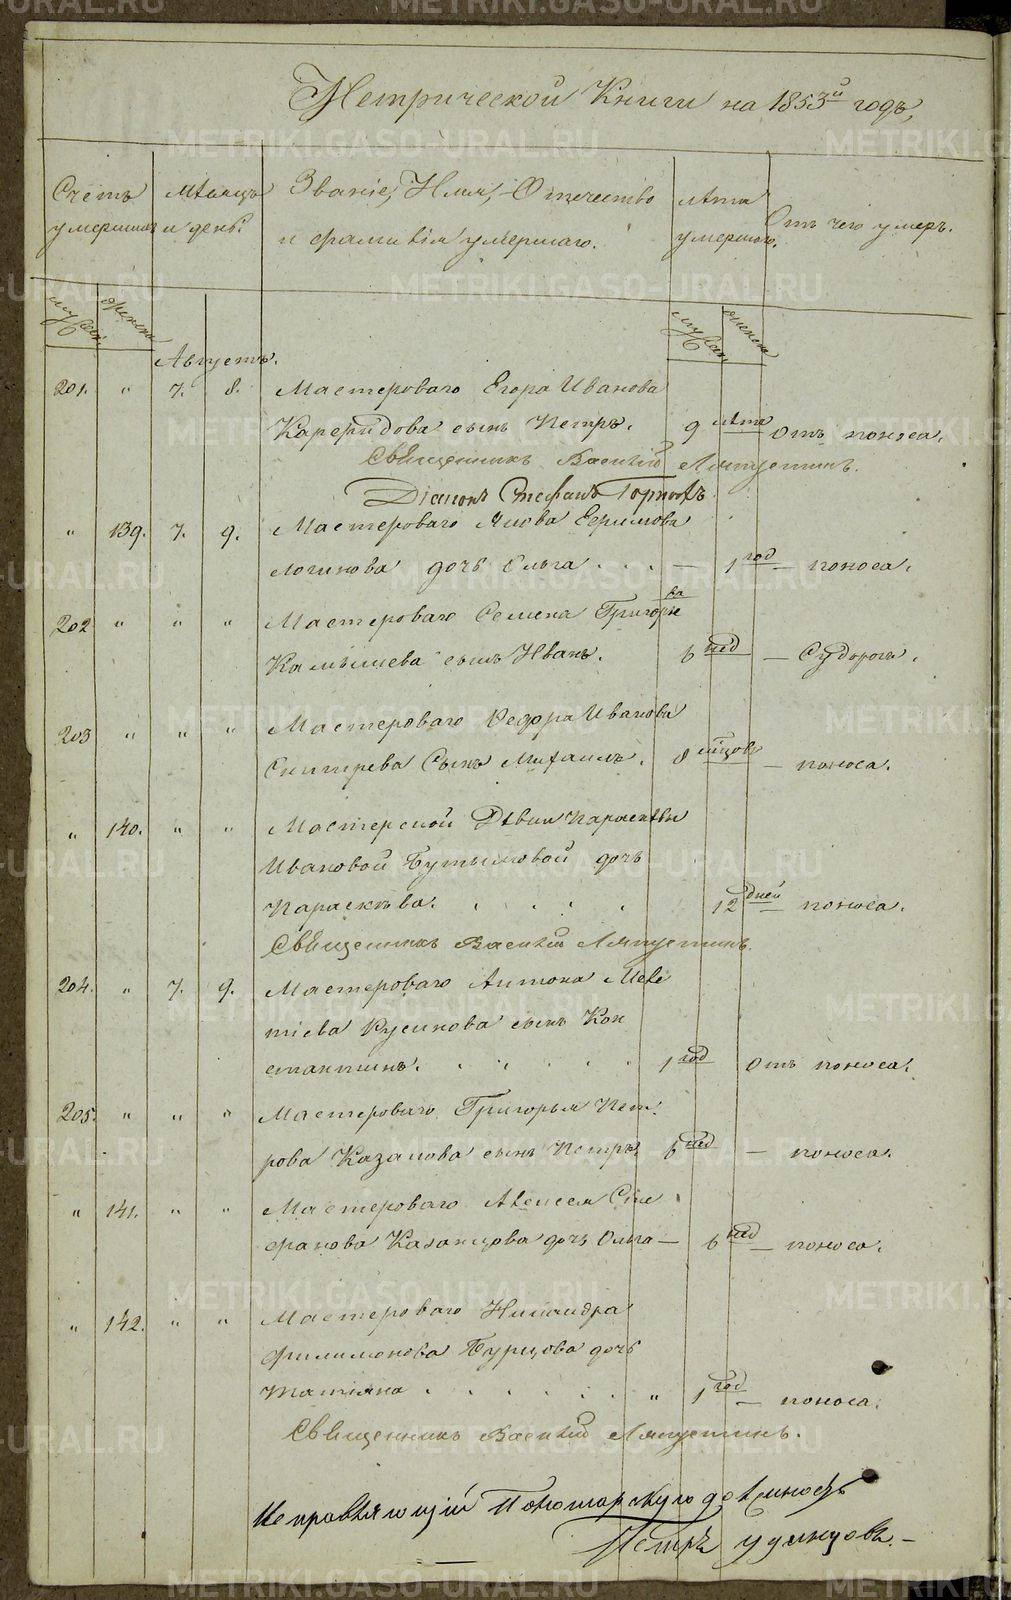 Метрической Книги на 1853й годъ,
Счетъ умершихъ
Мѣсяцъ и день.
Званіе, Имя, Отчество и фамилія умершаго.
Лѣта умершаго.
Отъ чего умеръ.
мужеск женска
мужеск женска
Августъ.
201. " 7. 8. Мастероваго Егора Иванова
сынъ Петръ. 9 лѣта Отъ поноса.
Священникъ Василій Ляпустинъ.
Діаконъ Стефанъ Горновъ
" 139. 7. 9. Мастероваго Якова Ефимова
Логинова дочь Ольга . . . — 1 год — поноса.
202 " " " Мастероваго Семена Григорьева
сынъ Иванъ. 6 нед — Судорогъ.
203 " " " Мастероваго Федора Иванова
Снигирева Сынъ Михаилъ. 8 мѣцовъ — поноса.
" 140. " " Мастерской Дѣвки Параскевы
Ивановой Бутыловой дочь
Параскѣва. . . . . 12 дней — поноса.
Священникъ Василій Ляпустинъ.
204. " 7. 9. Мастероваго Антона Меле
тіева Русинова сынъ Кон
стантинъ. . . . . . 1 год Отъ поноса.
205. " " " Мастероваго Григорья Пет
рова Казанова сынъ Петръ 6 нед — поноса.
" 141. " " Мастероваго Алексея Сте
фанова Казанцова дочь Ольга — 6 нед — поноса.
" 142. " " Мастероваго Никандра
Филимонова Бурцова дочь
Татіяна . . . . . . " 1 год — поноса.
Священникъ Василій Ляпустинъ.
Исправляющій Пономарскую должность
Петръ Удинцовъ. —
METRIKI.GASO-URAL.RU